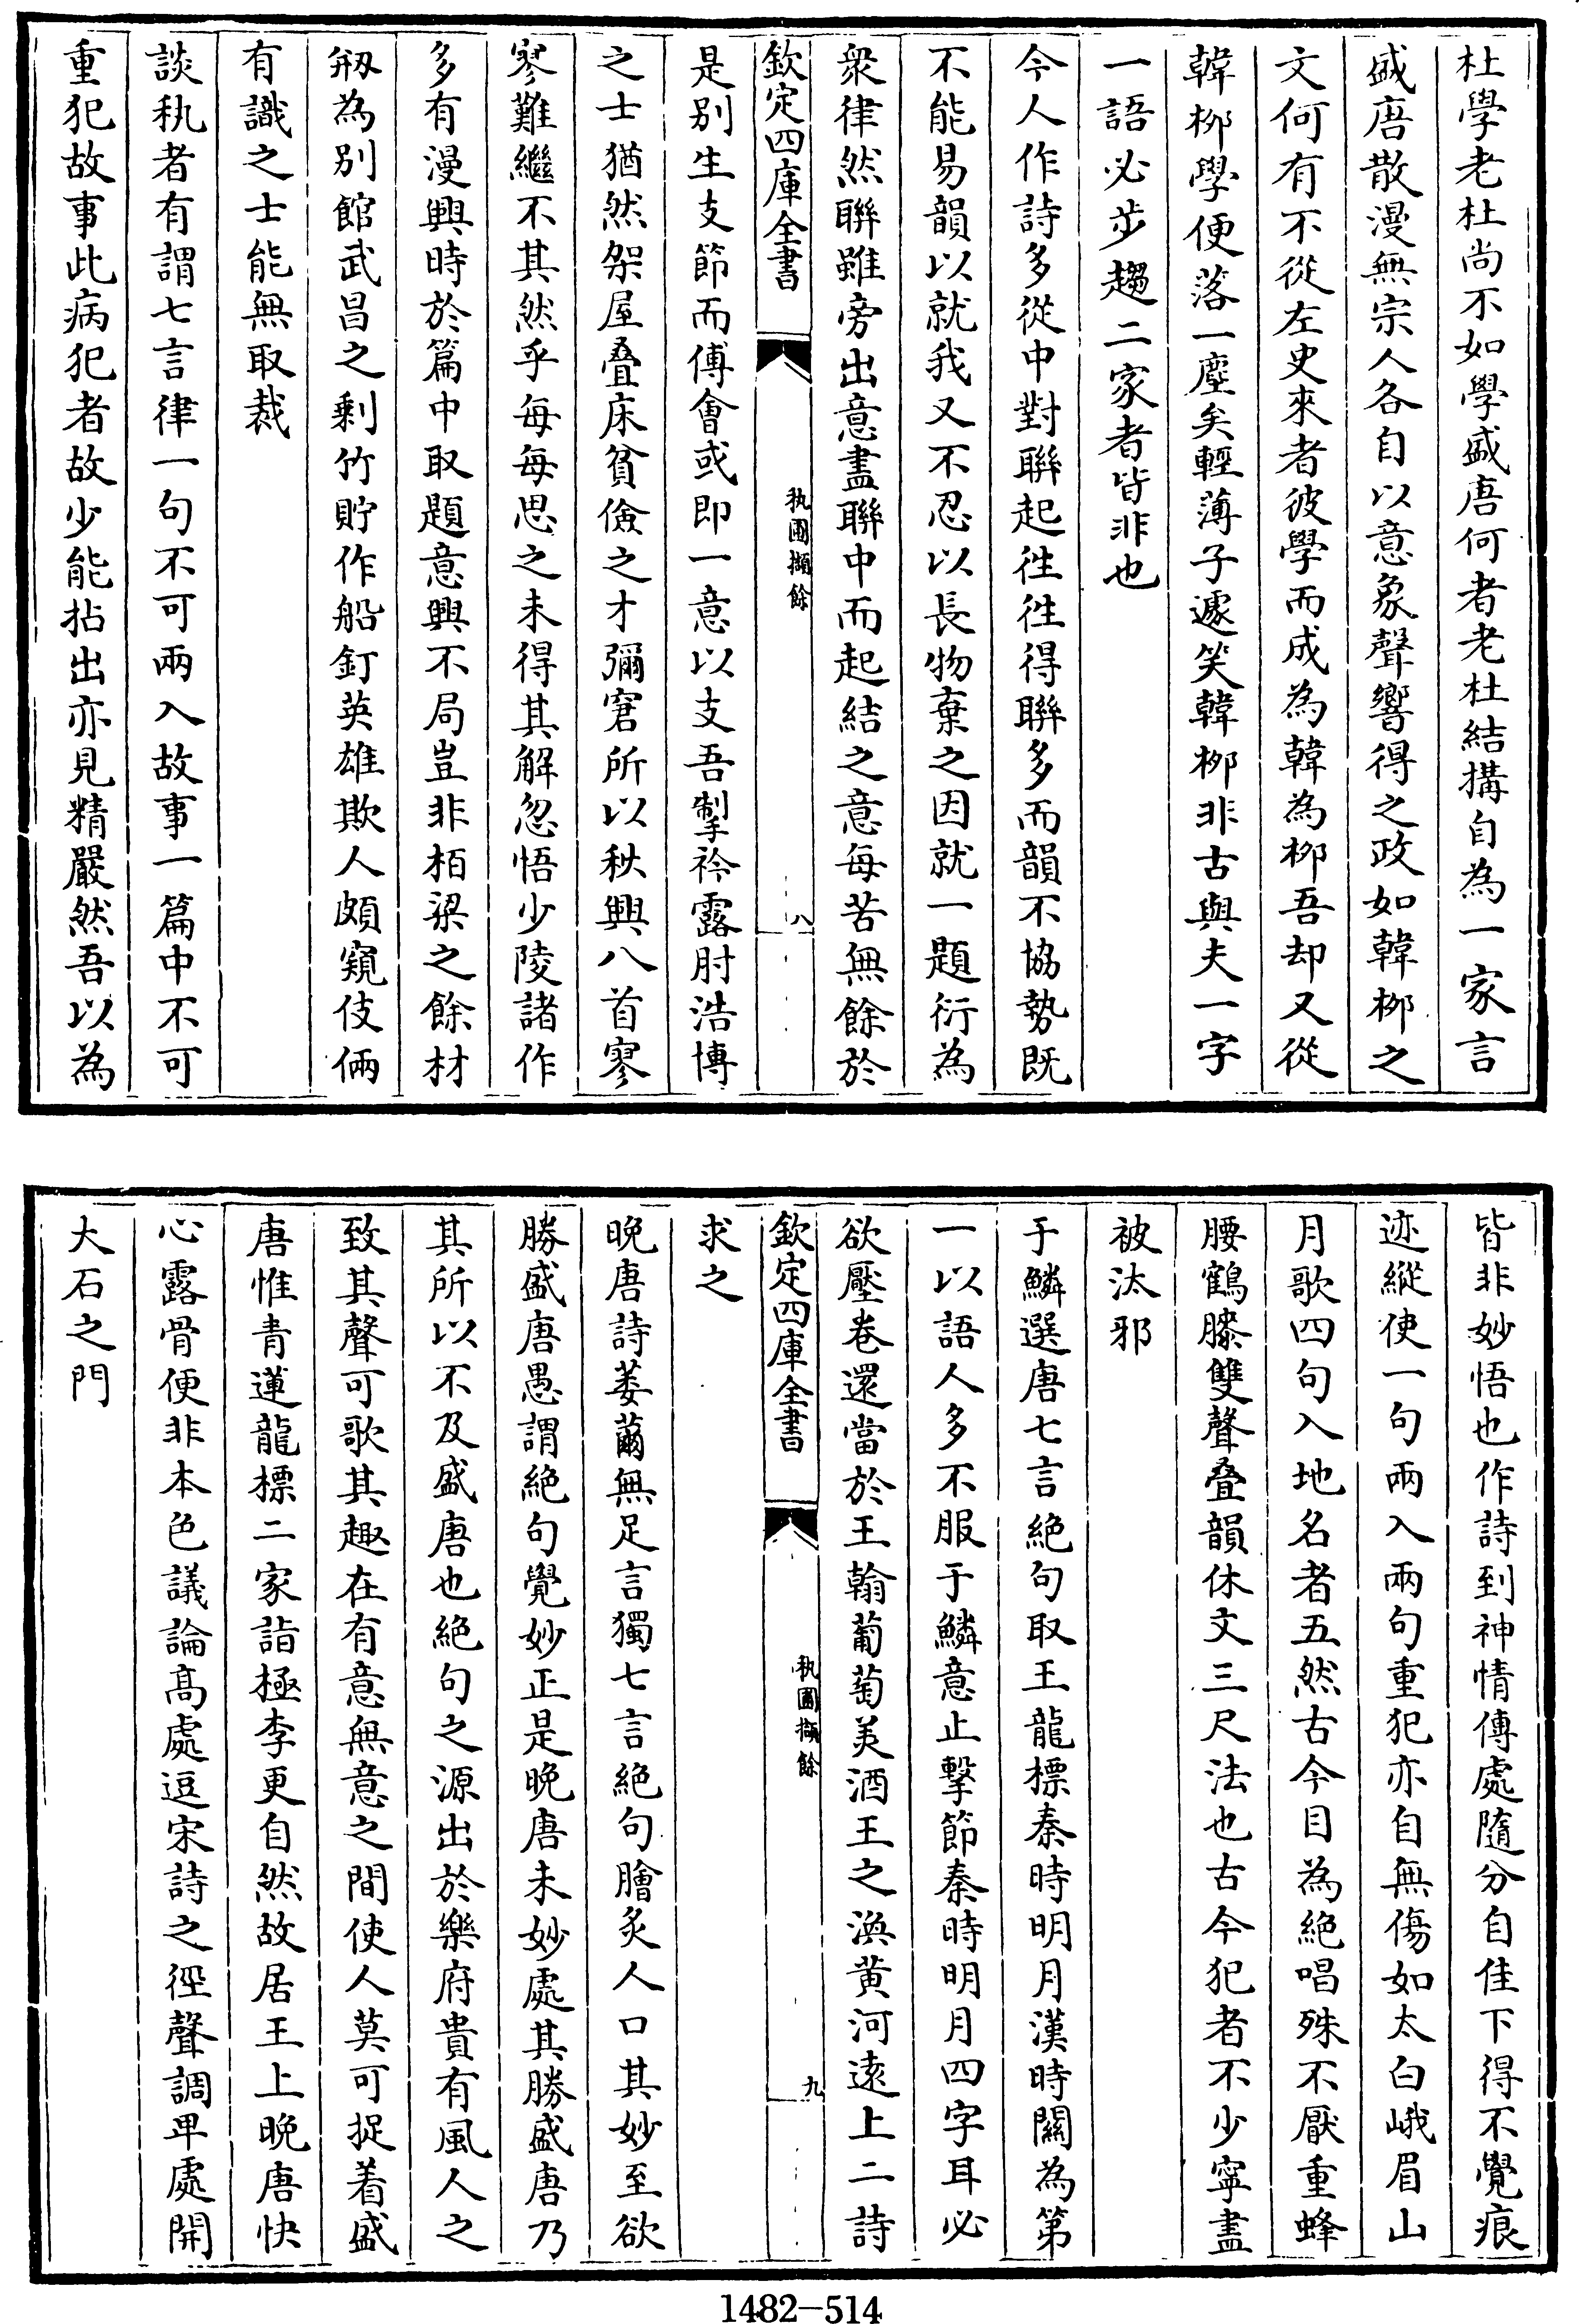 杜學老杜尚不如學盛唐何者老杜結搆自為一家言
盛唐散漫無宗人各自以意象聲響得之政如韓栁之
文何有不從左史來者彼學而成為韓為栁吾却又從
韓栁學便落一塵矣輕薄子遽笑韓栁非古與夫一字
一語必步趨二家者皆非也
今人作詩多從中對聯起徃徃得聯多而韻不協勢既
不能易韻以就我又不忍以長物棄之因就一題衍為
衆律然聯雖旁出意盡聯中而起結之意每苦無餘於
欽定四庫全書
秇圃擷餘
八
是别生支節而傅會或即一意以支吾掣衿露肘浩博
之士猶然架屋叠床貧儉之才彌窘所以秋興八首寥
寥難繼不其然乎每每思之未得其解忽悟少陵諸作
多有漫興時於篇中取題意興不局豈非栢梁之餘材
剏為别館武昌之剩竹貯作船釘英雄欺人頗窺伎倆
有識之士能無取裁
談秇者有謂七言律一句不可兩入故事一篇中不可
重犯故事此病犯者故少能拈出亦見精嚴然吾以為
皆非妙悟也作詩到神情傳處隨分自佳下得不覺痕
迹縱使一句兩入兩句重犯亦自無傷如太白峨眉山
月歌四句入地名者五然古今目為絶唱殊不厭重蜂
腰鶴膝雙聲叠韻休文三尺法也古今犯者不少寧盡
被汰邪
于鱗選唐七言絶句取王龍標秦時明月漢時關為第
一以語人多不服于鱗意止擊節秦時明月四字耳必
欲壓卷還當於王翰葡萄美酒王之渙黄河逺上二詩
欽定四庫全書
秇圃擷餘
九
求之
晚唐詩萎薾無足言獨七言絶句膾炙人口其妙至欲
勝盛唐愚謂絶句覺妙正是晚唐未妙處其勝盛唐乃
其所以不及盛唐也絶句之源出於樂府貴有風人之
致其聲可歌其趣在有意無意之間使人莫可捉着盛
唐惟青蓮龍標二家詣極李更自然故居王上晚唐快
心露骨便非本色議論髙處逗宋詩之徑聲調卑處開
大石之門
1482-514